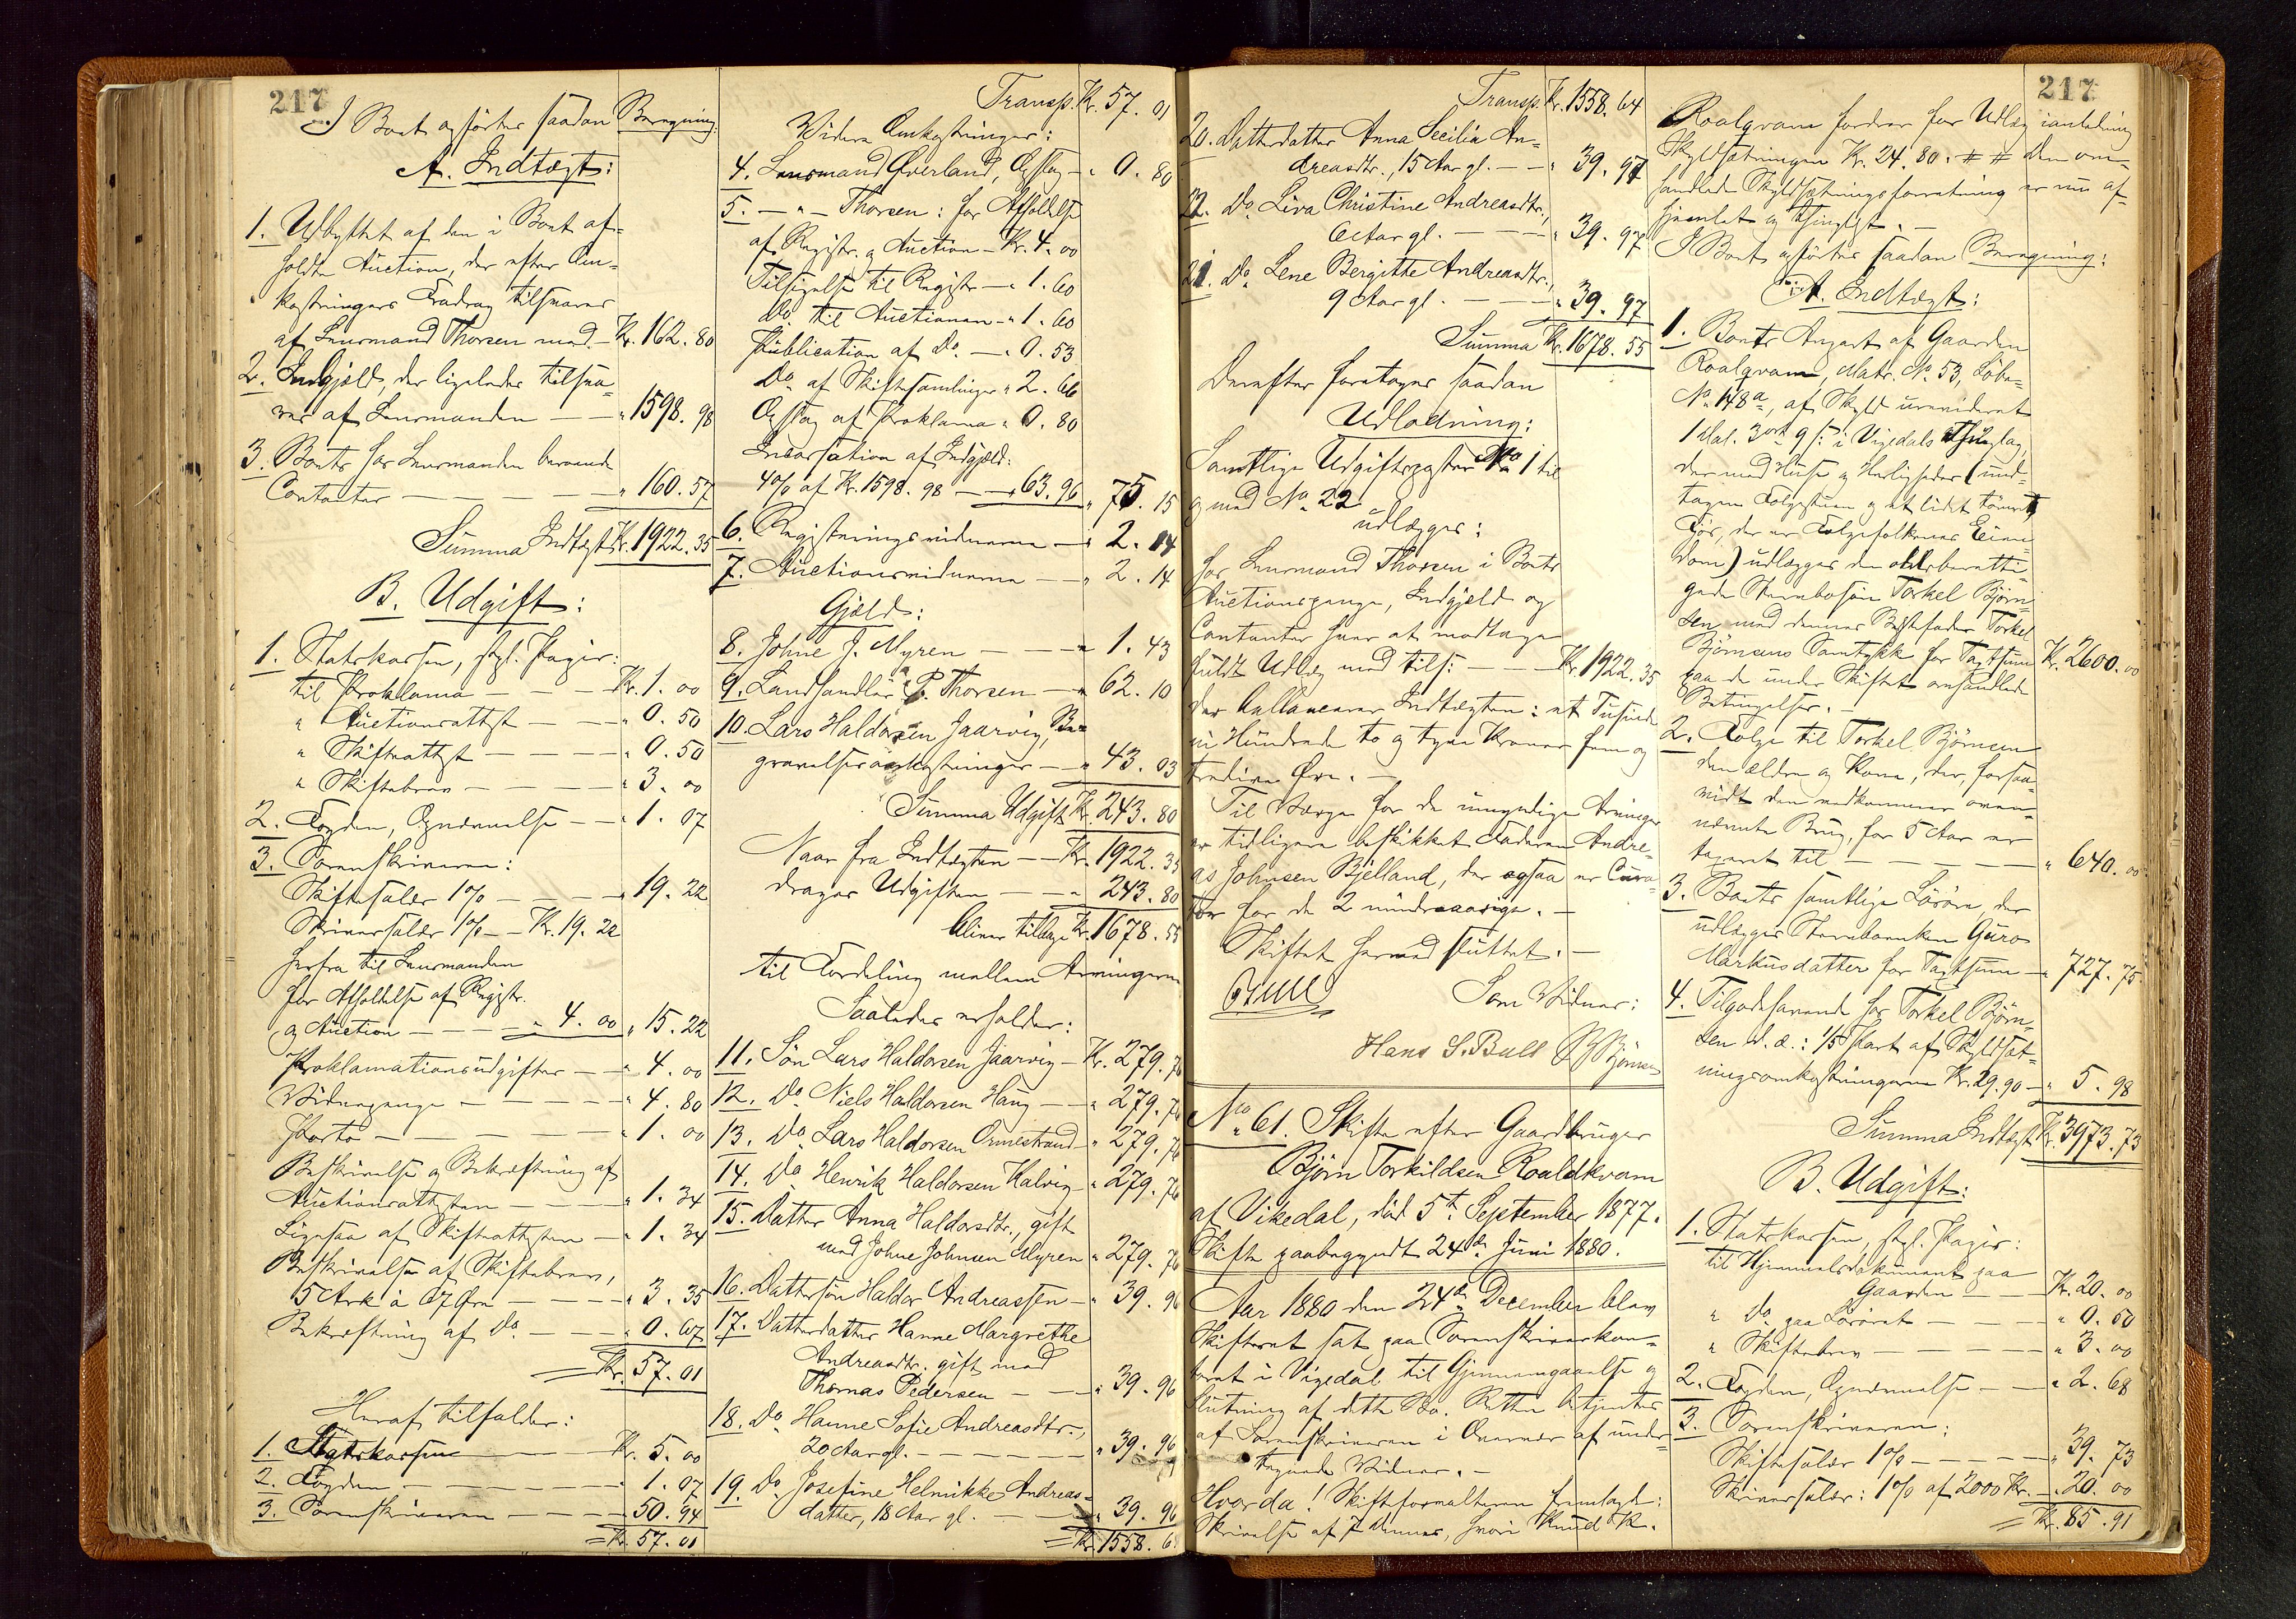 217
I Boet opförtes saadan Beregning:
A. Indtægt:
1. Udbyttet af den i Boet af-
holdte Auction, der efter Om-
kostningers Fradrag tilsvares
af Lensmand Thorsen med – Kr. 162. 80
2. Indgjæld, der ligeledes tilsva-
res af Lensmanden — — " 1598. 98
3. Boets hos Lensmanden beroende
Contanter — — — — " 160. 57
Summa Indtægt Kr. 1922. 35
B. Udgift:
1. Statskassen, stpl. Papir:
til Proklama — — — Kr. 1. 00
" Auctionsattest — — " 0. 50
" Skifteattest — — — " 0. 50
" Skiftebrev — — — " 3. 00
2. Fogden, Opnævnelse — — " 1. 07
3. Sorenskriveren:
Skiftesalær 1% — — — " 19. 22
Skriversalær 1% – – Kr. 19. 22
herfra til Lensmanden
for Afholdelse af Registr.
og Auction — — — — " 4. 00 " 15. 22
Proklamationsudgifter — — " 4. 00
Vidnepenge — — — — " 4. 80
Porto — — — — — " 1. 00
Beskrivelse og Bekræftning af
Auctionsattesten — — — " 1. 34
Ligesaa af Skifteattesten — " 1. 34
Beskrivelse af Skiftebrev,
5 Ark à 67 Øre — — — " 3. 35
Bekræftning af Do. — — " 0. 67
= Kr. 57. 01
Heraf tilfalder:
1. Statskassen — — Kr. 5. 00
2. Fogden — — — — " 1. 07
3. Sorenskriveren — — — " 50. 94
= Kr. 57. 01
Transp. Kr. 57. 01
Videre Omkostninger:
4. Lensmand Øverland, Opslag — " 0. 80
5. — " — Thorsen: for Afholdelse
af Registr. og Auction – Kr. 4. 00
Tilsigelse til Registr — " 1. 60
Do. til Auctionen – " 1. 60
Publication af Do. — " 0. 53
Do. af Skiftesamlinger " 2. 66
Opslag af Proklama " 0. 80
Incassation af Indgjæld:
4% af Kr. 1598. 98 — — " 63. 96 " 75. 15
6. Registreringsvidnerne — " 2. 14
7. Auctionsvidnerne — — " 2. 14
Gjæld:
8. Johne J. Myren — — — " 1. 43
9. Landhandler P. Thorsen — " 62. 10
10. Lars Haldorsen Jaarvig, Be-
gravelsesomkostninger — " 43. 03
Summa Udgift Kr. 243. 80
Naar fra Indtægten — — Kr. 1922. 35
drages Udgiften — — " 243. 80
bliver tilbage Kr. 1678. 55
til Fordeling mellem Arvingerne
Saaledes erholder:
11. Søn Lars Haldorsen Jaarvig – Kr. 279. 76
12. Do. Niels Haldorsen Haug — — " 279. 76
13. Do. Lars Haldorsen Ormestrand " 279. 76
14. Do. Henrik Haldorsen Kalvig — " 279. 76
15. Datter Anna Haldorsdtr., gift
med Johne Johnsen Myren " 279. 76
16. Dattersøn Haldor Andreassen — " 39. 96
17. Datterdatter Hanne Margrethe
Andreasdtr. gift med
Thomas Pedersen — — " 39. 96
18. Do. Hanne Sofie Andreasdtr.,
20 Aar gl. — — — — " 39. 96
19. Do. Josefine Helmikke Andreas-
datter, 18 Aar gl. — — — " 39. 96
= Kr. 1558. 6
Transp. Kr. 1558. 64
20. Datterdatter Anna Secilia An-
dreasdtr., 15 Aar gl. — — " 39. 97
22. Do. Liva Christine Andreasdtr.,
6 Aar gl. — — — " 39. 97
21. Do. Lene Bergitte Andreasdtr.,
9 Aar gl. — — — " 39. 97
Summa Kr. 1678. 55
Derefter foretoges saadan
Udlodning:
Samtlige Udgiftsposter No 1 til
og med No. 22
udlægges:
hos Lensmand Thorsen i Boets
Auctionspenge, Indgjæld og
Contanter hver at modtage
fuldt Udlæg med tils: — — Kr. 1922. 35
der ballancerer Indtægten: et Tusinde
ni Hundrede to og tyve Kroner fem og
tredive Øre. —
Til Værge for de umyndige Arvinger
er tidligere beskikket Faderen Andre-
as Johnsen Bjelland, der ogsaa er Cura-
tor for de 2 mindreaarige. —
Skiftet hermed sluttet. —
Som Vidner:
Hans S. Bull B Bjørnsen
No. 61. Skifte efter Gaardbruger
Bjørn Torkildsen Roaldkvam
af Vikedal, død 5te September 1877.
Skifte paabegyndt 24de Juni 1880.
Aar 1880 den 24de December blev
Skifteret sat paa Sorenskriverkon-
toret i Vigedal til Gjennemgaaelse og
Slutning af dette Bo. Retten betjentes
af Sorenskriveren i Overvær af under-
tegnede Vidner. —
Hvorda! Skifteforvalteren fremlagde:
Skrivelse af 7 dennes, hvori Knud K.
217
Roalqvam fordrer for Udlæg i anledning
Skyldsætningen Kr. 24. 80. # # Den om-
handlede Skyldsætningsforretning er nu af-
hjemlet og thinglyst. —
I Boet opførtes saadan Beregning:
A. Indtægt:
1. Boets Anpart af Gaarden
Roalqvam, Matr. No. 53, Løbe-
No. 148a, af Skyld urevideret
1 Dal. 3 ort 9 s: i Vigedals Thinglag,
der med Huse og Herligheder (und-
tagen Folgestuen og et lidet tømret
Fjøs, der er Folgefolkenes Eien-
dom) udlægges den odelsberetti-
gede Stervbosøn Torkel Bjørn-
sen med dennes Bestefader Torkel
Bjørnsens Samtykke for Taxtsum Kr. 2600. 00
paa de under Skiftet omhandlede
Betingelser. —
2. Folge til Torkel Bjørnsen
den ældre og Kone, der, forsaa-
vidt den vedkommer oven-
nævnte Brug, for 5 Aar er
taxeret til — — — — — " 640. 00
3. Boets samtlige Løsøre, der
udlægges Stervboenken Guro
Markusdatter for Taxtsum — " 727. 75
4. Tilgodehavende hos Torkel Bjørn-
sen d. æ.: 1/5 Part af Skyldsæt-
ningsomkostningerne Kr. 29. 90 — " 5. 98
Summa Indtægt Kr. 3973. 73
B. Udgift:
1. Statskassen, stpl. Papir:
til Hjemmelsdokument paa
Gaarden — — Kr. 20. 00
" Do. paa Løsøret — — — " 0. 50
" Skiftebrev — — — — " 3. 00
2. Fogden, Opnævnelse — — " 2. 68
3. Sorenskriveren:
Skiftesalær 1% — — — " 39. 73
Skriversalær: 1% af 2000 Kr. — " 20. 00
= Kr. 85. 91